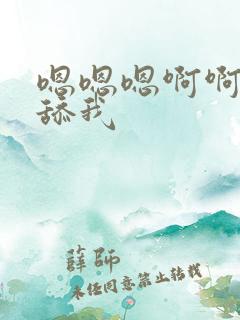 嗯嗯嗯啊啊
舔我
薛师
未经同意禁止转载